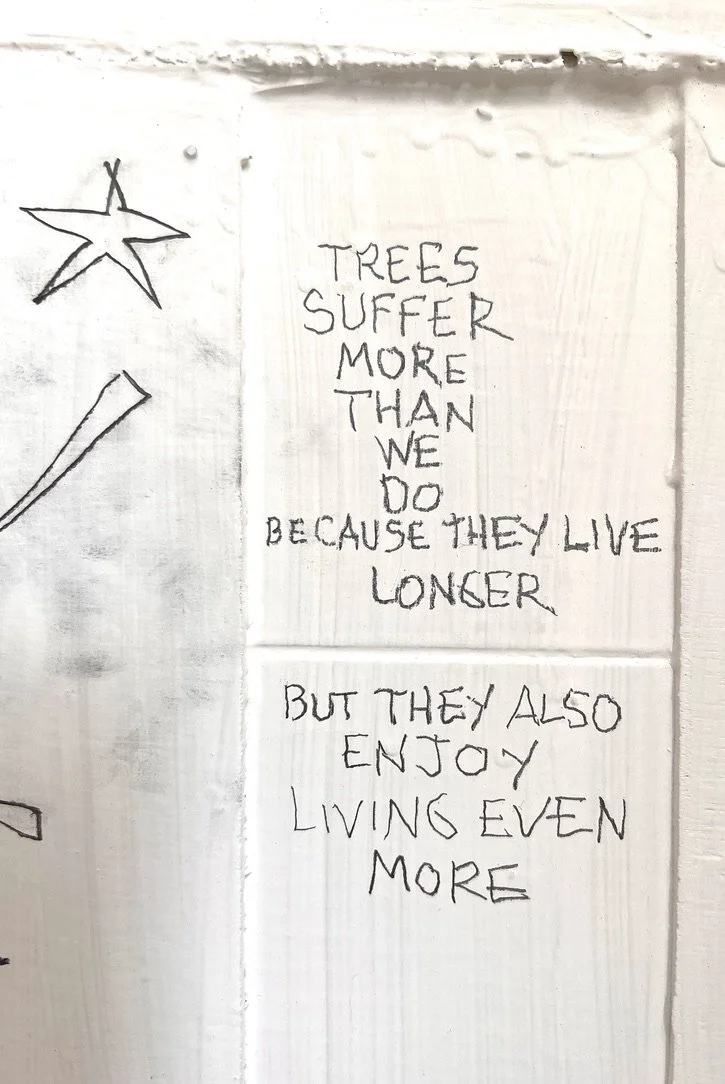 TREES
SUFFER
MORE
THAN
WE
DO
BECAUSE THEY LIVE
LONGER
BUT THEY ALSO
ENJOY
LIVING EVEN
MORE